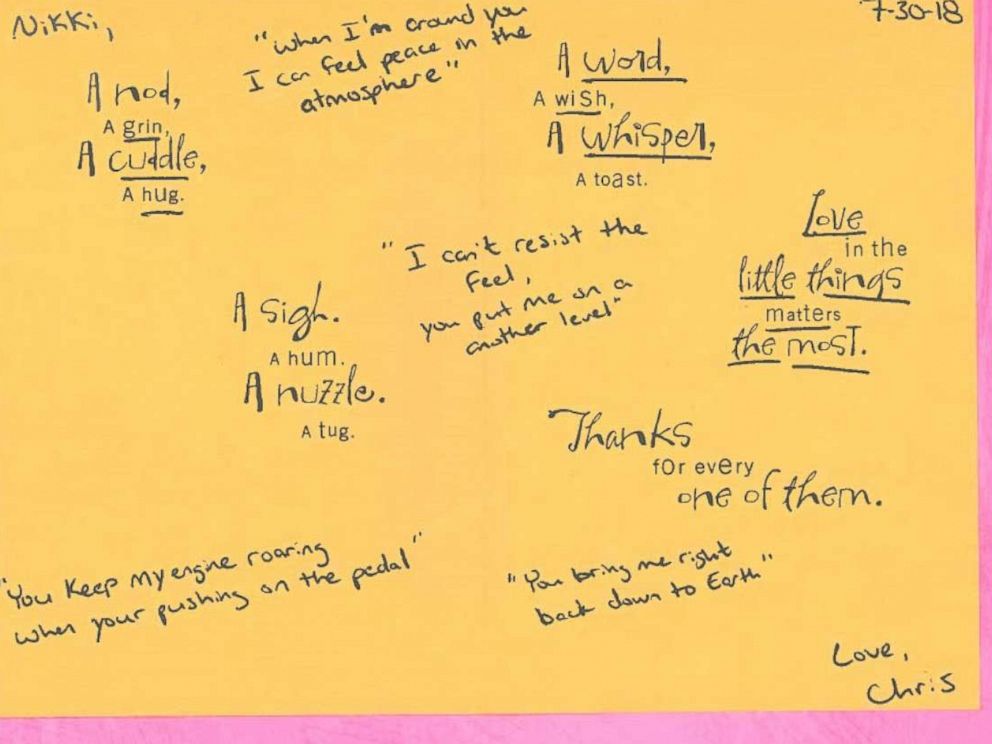 Nikki,
7-30-18
"when I'm around you
I can feel peace in the
atmosphere"
A nod,
A grin,
A cuddle,
A hug.
A word,
A wish,
A whisper,
A toast.
"I can't resist the
feel,
you put me on a
another level"
A sigh.
A hum.
A nuzzle.
A tug.
Love
in the
little things
matters
the most.
Thanks
for every
one of them.
"You Keep My engine roaring
when your pushing on the pedal"
"You bring me right
back down to Earth"
Love,
Chris